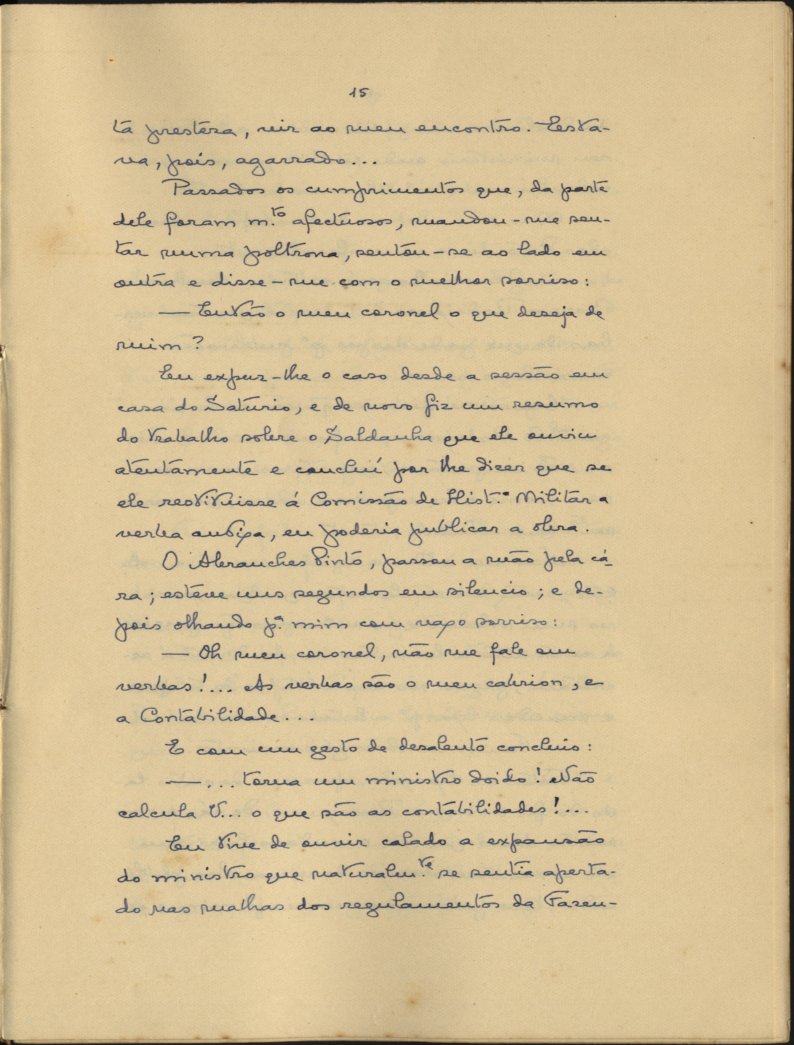 15
ta presteza, vir ao meu encontro. Esta-
va, pois, agarrado...
Passados os cumprimentos que, da parte
dele foram m.to afectuosos, mandou-me sen-
tar numa poltrona, sentou-se ao lado em
outra e disse-me com o melhor sorriso:
— Então o meu coronel o que deseja de
mim?
Eu expuz-lhe o caso desde a sessão em
casa do Satúrio, e de novo fiz um resumo
do trabalho sobre o Saldanha que ele ouviu
atentamente e concluí por lhe dizer que se
ele restituisse á Comissão de Hist.ª Militar a
verba antiga, eu poderia publicar a obra.
O Abranches Pinto, passou a mão pela cá-
ra; esteve uns segundos em silencio; e de-
pois olhando p.ª mim com vago sorriso:
— Oh meu coronel, não me fale em
verbas!... As verbas são o meu cabrion, e
a Contabilidade...
E com um gesto de desalento concluio:
— ... torna um ministro doido! Não
calcula V... o que são as contabilidades!...
Eu tive de ouvir calado a expansão
do ministro que naturalm.te se sentia aperta-
do nas malhas dos regulamentos da Fazen-